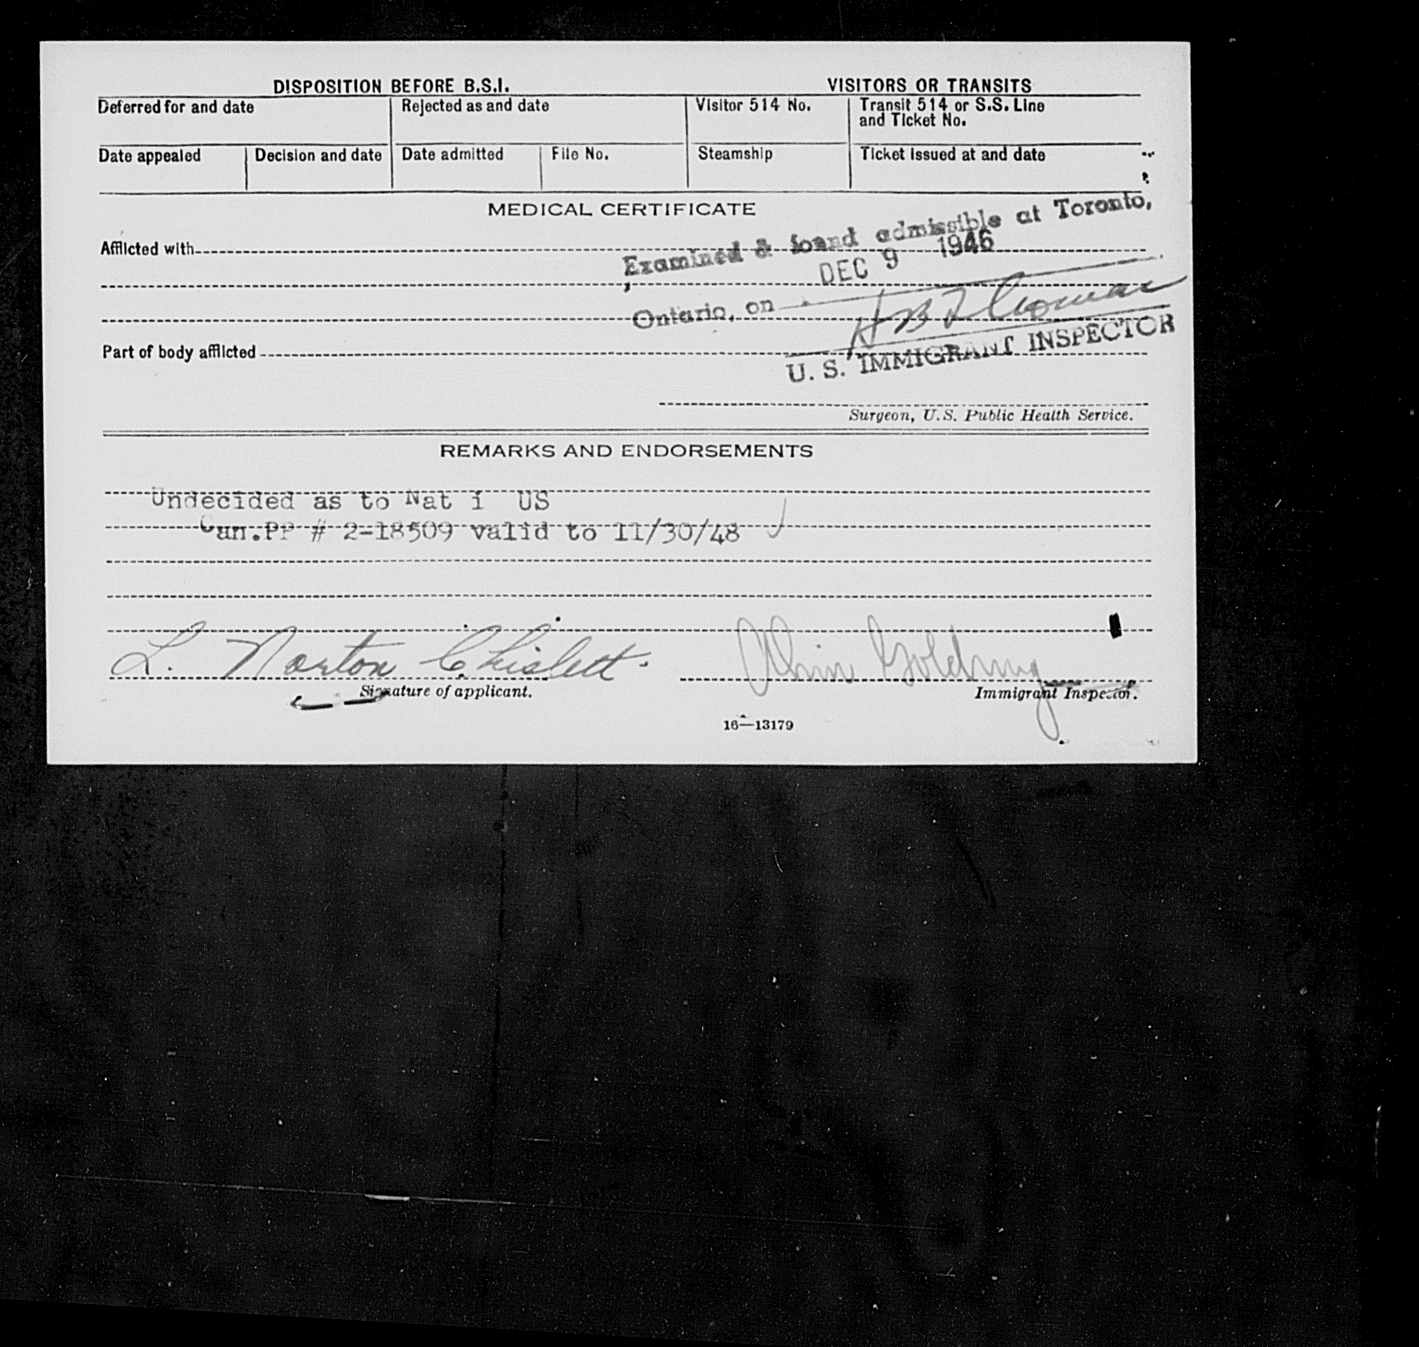 DISPOSITION BEFORE B.S.I. VISITORS OR TRANSITS
Deferred for and date Rejected as and date Visitor 514 No. Transit 514 or S.S. Line
and Ticket No.
Date appealed Decision and date Date admitted File No. Steamship Ticket issued at and date
MEDICAL CERTIFICATE
Examined & found admissible at Toronto,
Afflicted with
DEC 9 1946
Ontario, on
H B Thomas
Part of body afflicted
U. S. IMMIGRANT INSPECTOR
Surgeon, U.S. Public Health Service.
REMARKS AND ENDORSEMENTS
Undecided as to Nat i US
Can.PP # 2-18509 valid to 11/30/48
L. Norton Chislett.
Signature of applicant. Immigrant Inspector.
16—13179